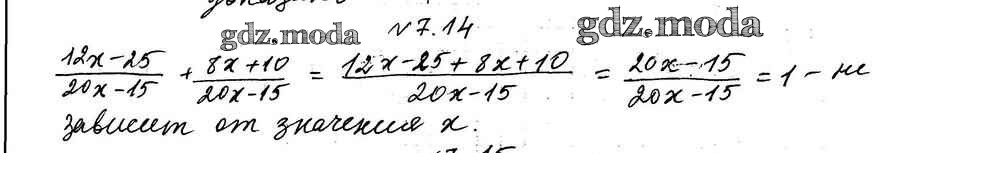 №7.14
gdz.moda gdz.moda
(12x-25)/(20x-15) + (8x+10)/(20x-15) = (12x-25+8x+10)/(20x-15) = (20x-15)/(20x-15) = 1 - не
зависит от значения x.